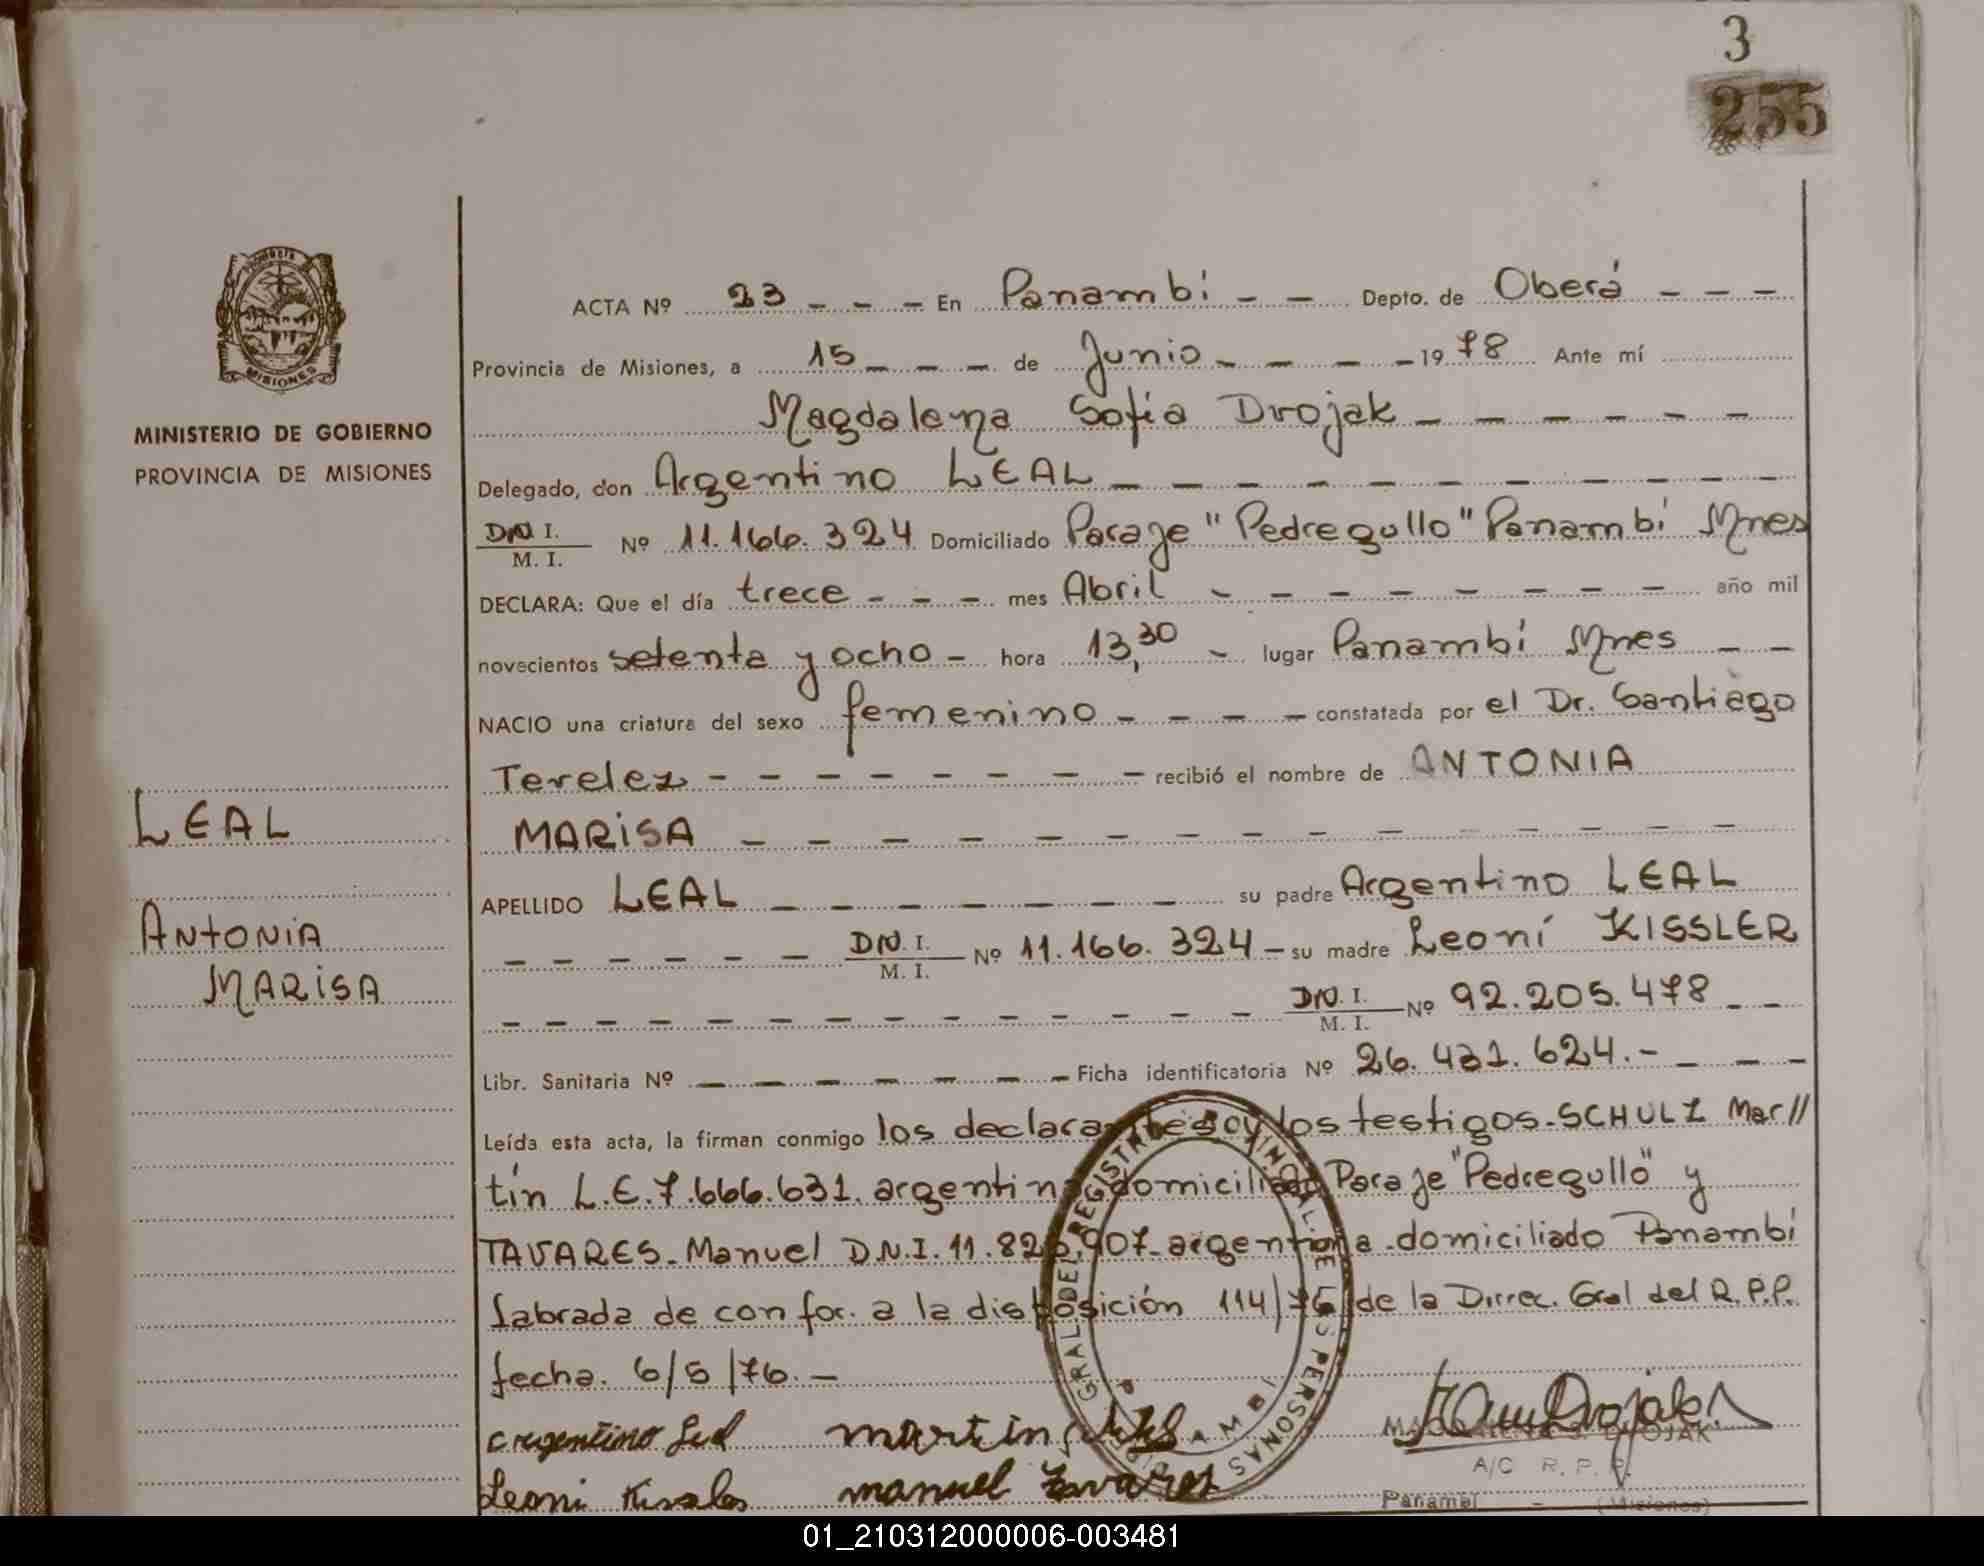 3
255
MISIONES
MINISTERIO DE GOBIERNO
PROVINCIA DE MISIONES
LEAL
ANTONIA
MARISA
ACTA Nº 23 - - - En Panambí - - Depto. de Oberá - - -
Provincia de Misiones, a 15 - - - de Junio - - - - 1978 Ante mí
Magdalena Sofia Dvojak - - - - - -
Delegado, don Argentino LEAL - - - - - - - - - - -
D.N.I. / M. I. Nº 11.166.324 Domiciliado Paraje "Pedregullo" Panambí Mnes
DECLARA: Que el día trece - - - mes Abril - - - - - - - - año mil
novecientos setenta y ocho - hora 13,30 - lugar Panambí Mnes - -
NACIO una criatura del sexo femenino - - - - constatada por el Dr. Santiago
Terelez - - - - - - - - recibió el nombre de ANTONIA
MARISA - - - - - - - - - - - - - - -
APELLIDO LEAL - - - - - - - su padre Argentino LEAL
- - - - - - D.N.I. / M. I. Nº 11.166.324 - su madre Leoní KISSLER
- - - - - - - - - - - - - - - - - D.N.I. / M. I. Nº 92.205.478 - -
Libr. Sanitaria Nº - - - - - - - Ficha identificatoria Nº 26.431.624.- - - -
Leída esta acta, la firman conmigo los declarantes y los testigos-SCHULZ Mar//
tín L.E.7.666.631. argentino domiciliado Paraje "Pedregullo" y
TAVARES-Manuel D.N.I. 11.826.907-argentino-domiciliado Panambí
labrada de confor. a la disposición 114/76 de la Direc. Gral del R.P.P.
fecha. 6/5/76.-
argentino Leal martin
Leoni manuel Tavares
GRAL DEL REGISTRO PROVINCIAL DE LAS PERSONAS
MAGDALENA S. DVOJAK
A/C R. P. P.
Panambí - (Misiones)
01_210312000006-003481